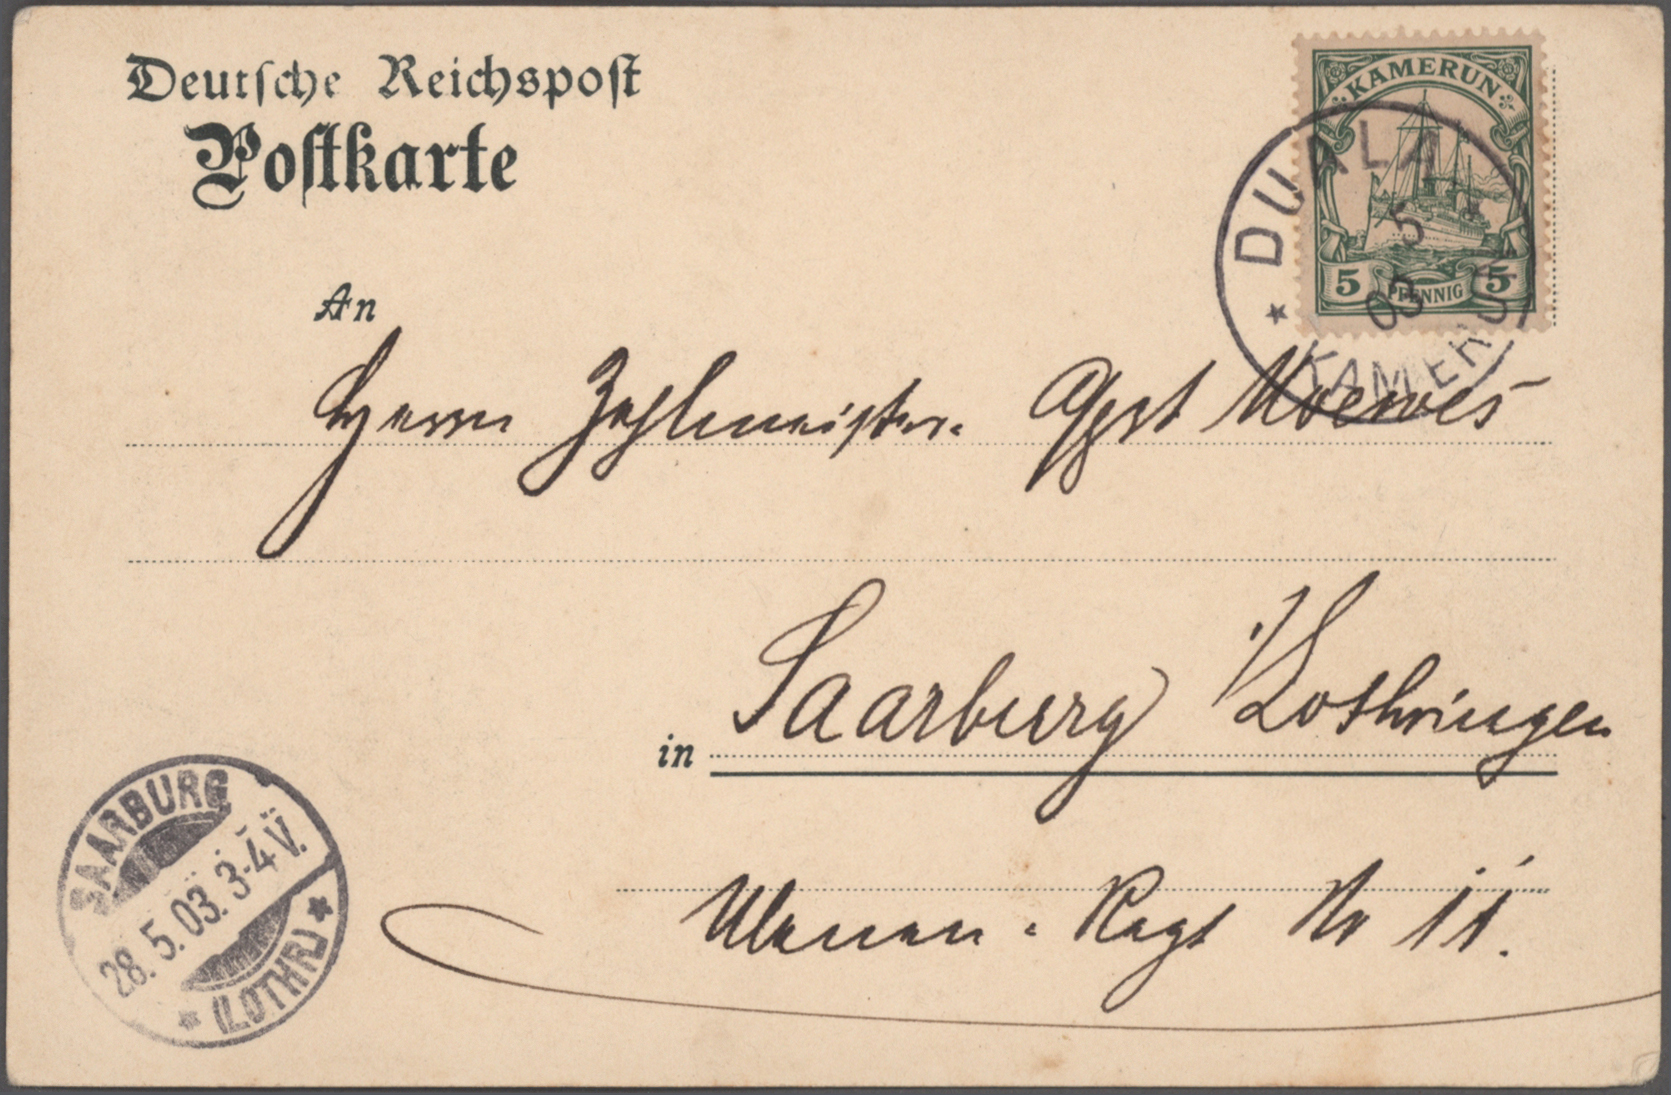 Deutsche Reichspost
Postkarte
KAMERUN
5 PFENNIG 5
DUALA
5
03
KAMERUN
An
Herrn Zahlmeister Aspt Moewes
in Saarburg i/Lothringen
Ulanen-Regt Nr 11.
SAARBURG
28.5.03. 3-4 V.
(LOTHR)